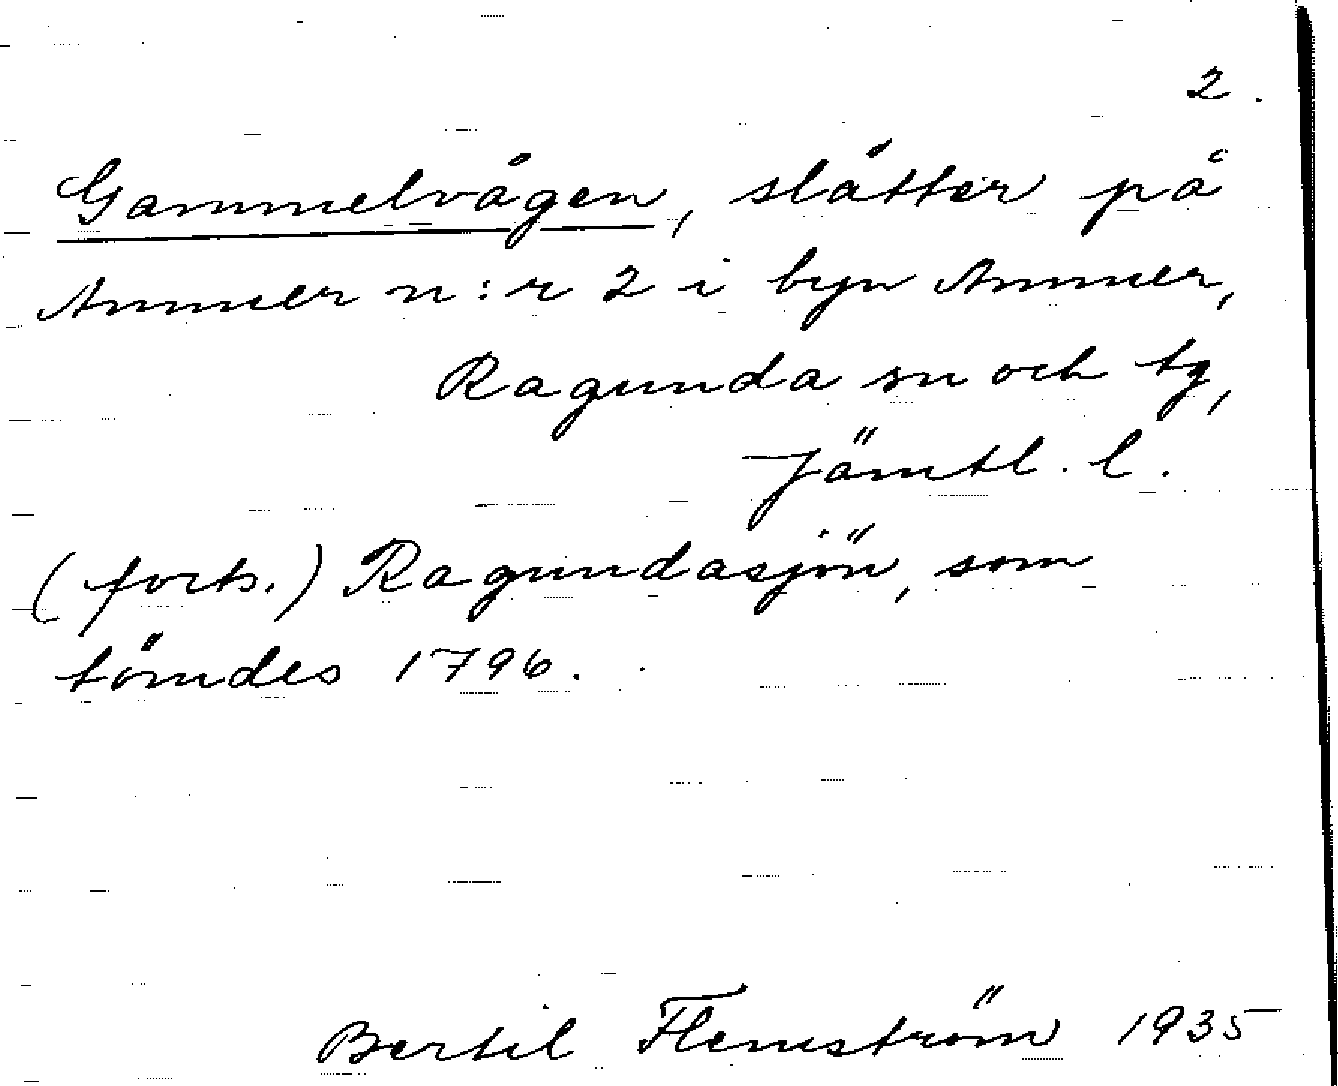 2.
Gammelvågen, slåtter på
Ammer n:r 2 i byn Ammer,
Ragunda sn och tg,
Jämtl. l.
(forts.) Ragundasjön, som
tömdes 1796.
Bertil Flemström 1935